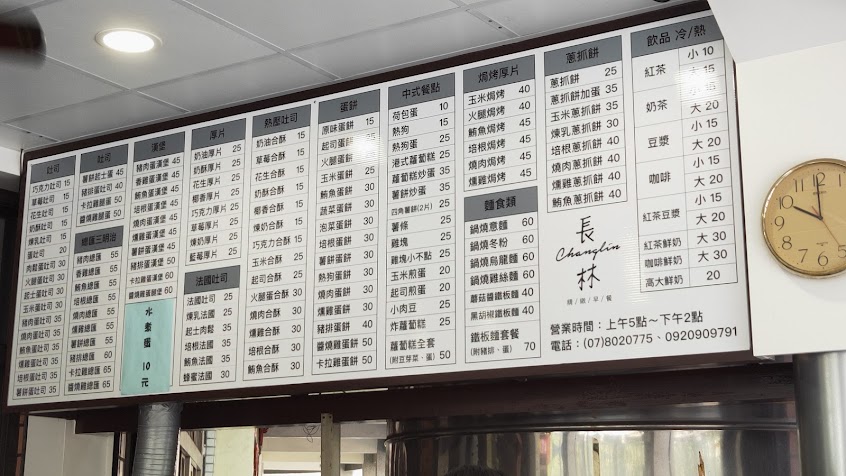 吐司
巧克力吐司 15
草莓吐司 15
花生吐司 15
奶酥吐司 15
煉乳吐司 15
肉鬆蛋吐司 30
火腿蛋吐司 30
起士蛋吐司 30
玉米蛋吐司 30
豬肉蛋吐司 35
燒肉蛋吐司 35
燻雞蛋吐司 35
培根蛋吐司 35
鮪魚蛋吐司 35
薯餅蛋吐司 35
吐司
薯餅起士蛋 45
豬排吐司蛋 40
卡拉雞腿蛋 50
醬燒雞腿蛋 50
總匯三明治
豬肉總匯 55
香雞總匯 55
鮪魚總匯 55
培根總匯 55
燒肉總匯 55
燻雞總匯 55
薯餅總匯 55
豬排總匯 60
卡拉雞總匯 65
醬燒雞總匯 65
漢堡
豬肉蛋漢堡 45
香雞蛋漢堡 45
鮪魚蛋漢堡 45
培根蛋漢堡 45
燒肉蛋漢堡 45
燻雞蛋漢堡 45
薯餅蛋漢堡 45
豬排蛋漢堡 50
卡拉雞蛋漢堡 60
醬燒雞蛋漢堡 60
水煎蛋10元
厚片
奶油厚片 25
奶酥厚片 25
花生厚片 25
椰香厚片 25
巧克力厚片 25
草莓厚片 25
煉奶厚片 25
藍莓厚片 25
法國吐司
法國吐司 25
煉乳法國 25
起士肉鬆 35
培根法國 35
火腿法國 35
蜂蜜法國 30
熱壓吐司
奶油合酥 15
草莓合酥 15
花生合酥 15
奶酥合酥 15
椰香合酥 15
煉奶合酥 15
巧克力合酥 15
玉米合酥 30
起司合酥 30
火腿蛋合酥 30
燒肉合酥 30
燻雞合酥 30
培根合酥 30
鮪魚合酥 30
蛋餅
原味蛋餅 25
起司蛋餅 30
火腿蛋餅 30
玉米蛋餅 30
蔬菜蛋餅 30
泡菜蛋餅 30
培根蛋餅 30
薯餅蛋餅 30
熱狗蛋餅 30
燒肉蛋餅 30
燻雞蛋餅 30
豬排蛋餅 40
醬燒雞蛋餅 50
卡拉雞蛋餅 50
中式餐點
荷包蛋 10
熱狗 15
熱狗蛋 25
港式蘿蔔糕 25
蘿蔔糕炒蛋 35
薯餅炒蛋 35
四角薯餅(2片) 25
薯條 25
雞塊 25
雞塊小不點 25
玉米煎蛋 20
起司煎蛋 20
小肉豆 25
炸蘿蔔糕 25
蘿蔔糕全套
(附豆芽菜、蛋) 50
焗烤厚片
玉米焗烤 40
火腿焗烤 40
鮪魚焗烤 45
培根焗烤 45
燒肉焗烤 45
燻雞焗烤 45
麵食類
鍋燒意麵 60
鍋燒冬粉 60
鍋燒烏龍麵 60
鍋燒雞絲麵 60
蘑菇醬鐵板麵 40
黑胡椒鐵板麵 40
鐵板麵套餐
(附豬排、蛋) 70
蔥抓餅
蔥抓餅 25
蔥抓餅加蛋 35
玉米蔥抓餅 35
煉乳蔥抓餅 30
培根蔥抓餅 40
燒肉蔥抓餅 40
燻雞蔥抓餅 40
鮪魚蔥抓餅 40
長
Changlin
林
飲品 冷/熱
紅茶
小 10
大 15
奶茶
小 15
大 20
豆漿
小 15
大 20
咖啡
小 15
大 20
紅茶豆漿
小 15
大 20
紅茶鮮奶 大 30
咖啡鮮奶 大 30
高大鮮奶 20
營業時間：上午5點～下午2點
電話：(07)8020775、0920909791
12
1
2
3
4
5
6
7
8
9
10
11